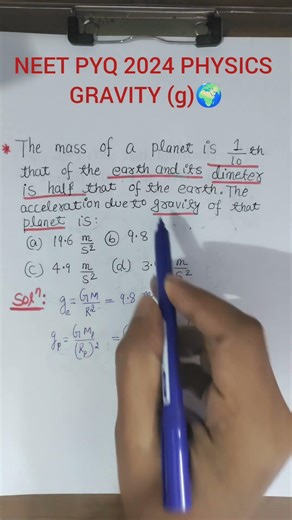 NEET PYQ 2024 PHYSICS
GRAVITY (g)🌍
* The mass of a planet is 1/10 th
that of the earth and its dimeter
is half that of the earth. The
acceleration due to gravity of that
planet is:
(a) 19.6 m/s² (b) 9.8
(c) 4.9 m/s² (d) 3. m/s²
Solⁿ: gₑ = GM/R² = 9.8
gₚ = GMₚ/(Rₚ)² =